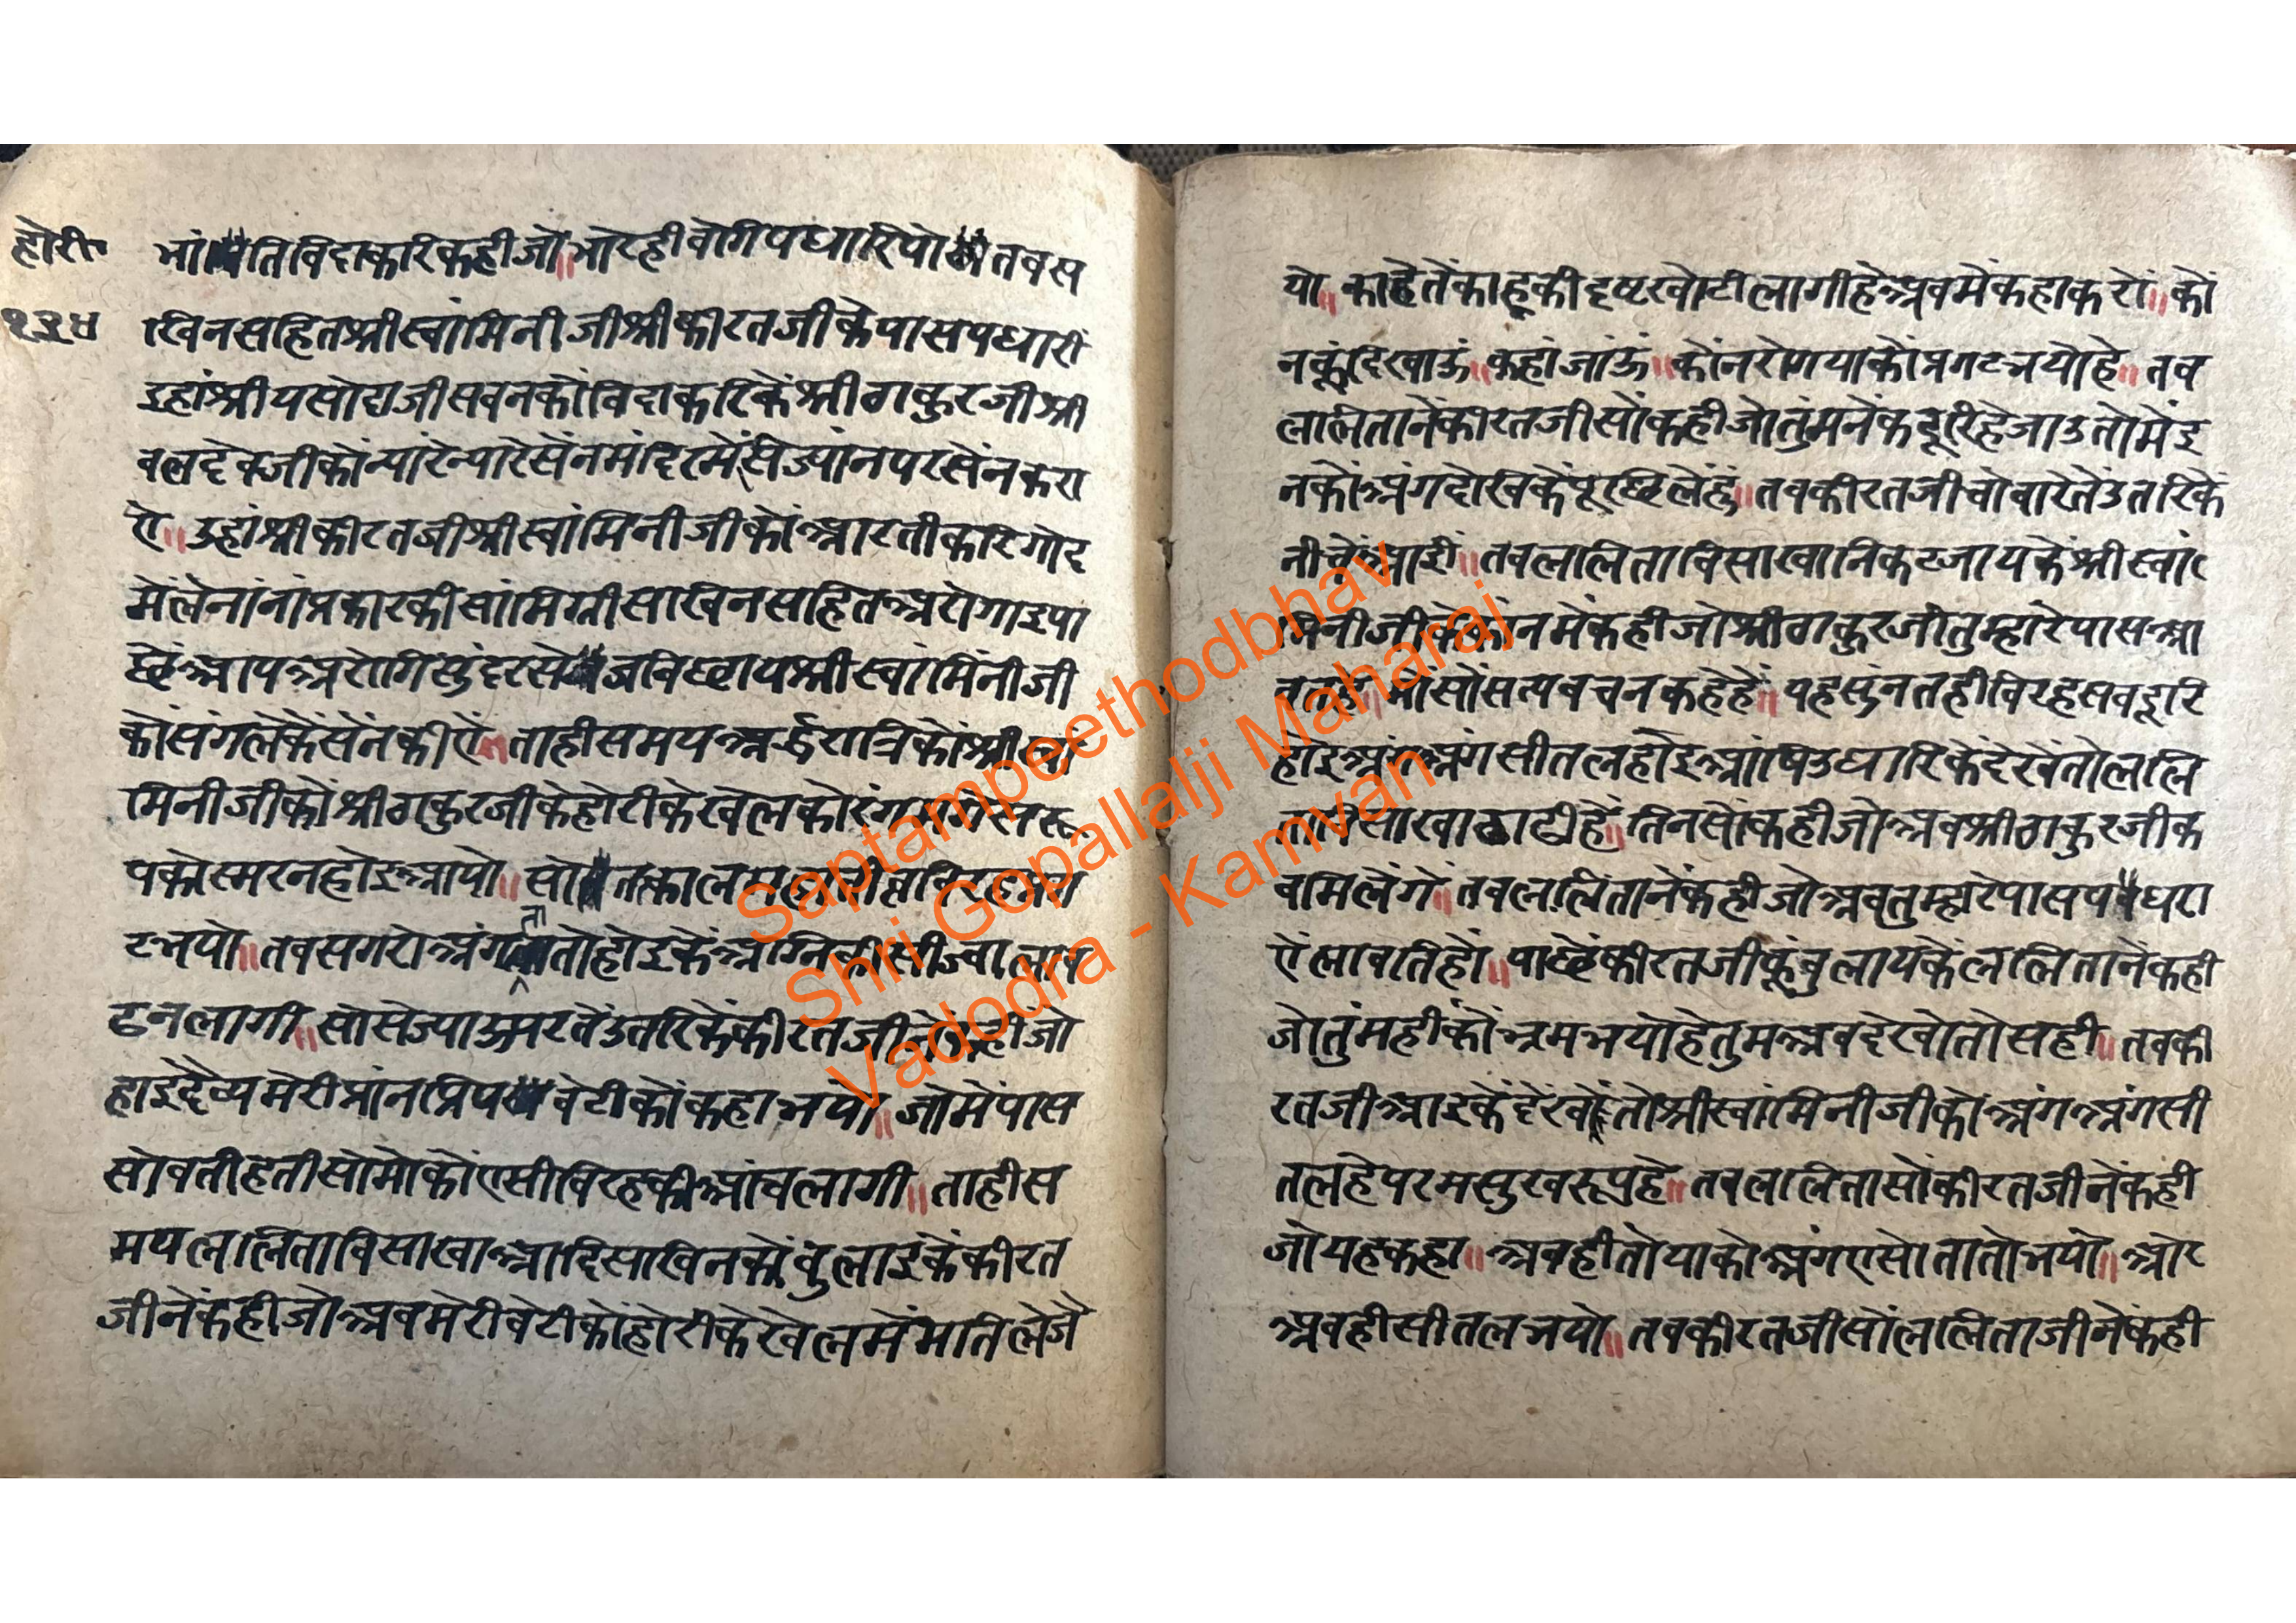 होरी॰
१३४
भांतिविदाकरिकहीजो॥भोरहीवेगिपधारियोतवस
खिनसहितश्रीस्वांमिनीजीश्रीकीरतजीकेपासपधारीं
इहांश्रीयसोदाजीसवनकोंविदाकरिकेंश्रीठाकुरजीश्री
वलदेवजीकोंन्यारेन्यारेसेंनमंदिरमेंसिज्यांनपरसेंनकरा
ऐ॥उहांश्रीकीरतजीश्रीस्वांमिनीजीकोंआरतीकरिगोद
मेंलेनांनांप्रकारकीसांमिग्रीसखिनसहितअरोगाइपा
छेंआपअरोगिसुंदरसेजविछायश्रीस्वांमिनीजी
कोंसंगलेकेंसेंनकीऐं॥ताहीसमयअर्द्धरात्रिकोंश्रीस्वां
मिनीजीकोंश्रीठाकुरजीकेहोरीकेखेलको
पकोस्मरनहोइआयो॥सोतत्काल
टभयो॥तवसगरोअंगतातोहोइकेंअग्निकीसीज्वाला
ढनलागी॥सोसेज्याऊपरतेंउतरिकेंकीरतजीनेंकहीजो
हाइदैव्यमेरीप्रांनप्रियवेटीकोंकहाभयो॥जोमेंपास
सोवतीहतीसोमोकोंएसीविरहकीआंचलागी॥ताहीस
मयललिताविसाखाआदिसखिनकोंवुलाइकेंकीरत
जीनेंकहीजोअवमेरीवेटीकोंहोरीकेखेलमेंमतिलेजै
यो॥काहेतेंकाहूकीदृष्टखोटीलागीहेअवमेंकहाकरों॥कों
नकूंदिखाऊं॥कहांजांऊं॥कोंनरोगयाकोंप्रगटभयोहे॥तव
ललितानेंकीरतजीसोंकहीजोतुंमनेंकदूरिहेजाउतोमेंइ
नकोंअंगदेखिकेंपूछिलेहुं॥तवकीरतजीचोवारेतेंउतरिकें
नीचेंआईं॥तवललिताविसाखानिकटजायकेंश्रीस्वां
मिनीजीकेकांनमेंकहीजोश्रीठाकुरजीतुम्हारेपासआ
मोसोंसत्यवचनकहेहें॥यहसुंनतहीविरहसवदूरि
होइअंगअंगसीतलहोइआंषिउघारिकेंदेखेंतोललि
ताविसाखाठाढीहें॥तिनसोंकहीजोअवश्रीठाकुरजीक
वमिलेंगे॥तवललितानेंकहीजोअवतुम्हारेपासपधरा
ऐंलावतिहों॥पाछेंकीरतजीकूंवुलायकेंललितानेंकही
जोतुंमहीकोंभ्रमभयोहेतुमअवदेखोतोसही॥तवकी
रतजीआइकेंदेखेंतोश्रीस्वांमिनीजीकोअंगअंगसी
तलहेपरमसुखरूपहे॥तवललितासोंकीरतजीनेंकही
जोयहकहा॥अवहीतोयाकोअंगएसोतातोभयो॥ओर
अवहीसीतलभयो॥तवकीरतजीसोंललिताजीनेंकही
Saptampeethodbhav
Shri Gopallalji Maharaj
Vadodra - Kamvan